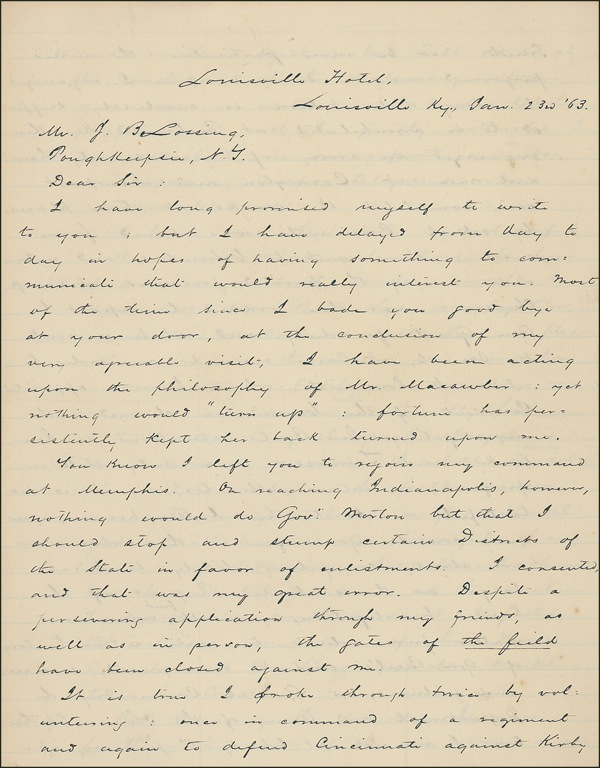 Louisville Hotel,
Louisville Ky., Jan. 23d '63.
Mr. J. B. Lossing,
Poughkeepsie, N.Y.
Dear Sir:
I have long promised myself to write
to you; but I have delayed from day to
day in hopes of having something to com=
municate that would really interest you. Most
of the time since I bade you good bye
at your door, at the conclusion of my
very agreeable visit, I have been acting
upon the philosophy of Mr. Macawber: yet
nothing would "turn up": fortune has per=
sistently kept her back turned upon me.
You know I left you to rejoin my command
at Memphis. On reaching Indianapolis, however,
nothing would do Gov. Morton but that I
should stop and stump certain Districts of
the State in favor of enlistments. I consented,
and that was my great error. Despite a
persevering application through my friends, as
well as in person, the gates of the field
have been closed against me.
It is true I broke through twice by vol=
unteering: once in command of a regiment
and again to defend Cincinnati against Kirby